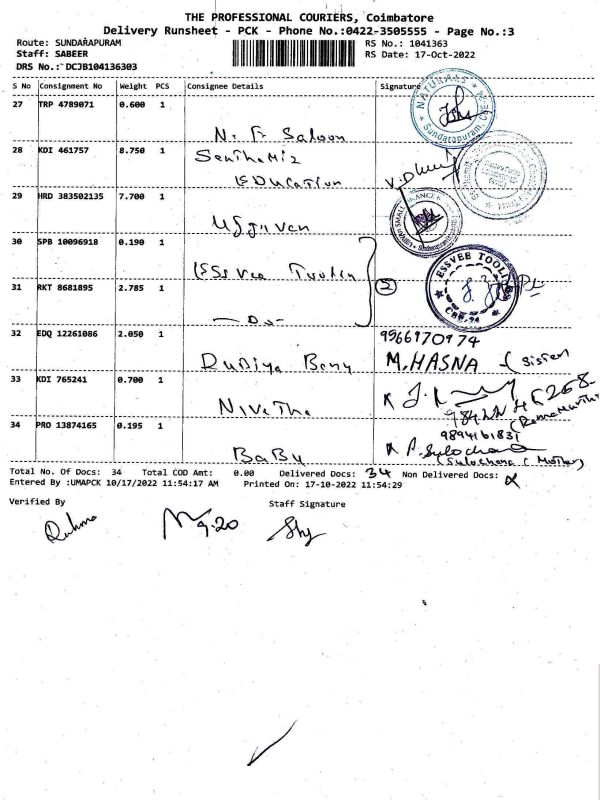 THE PROFESSIONAL COURIERS, Coimbatore
Delivery Runsheet - PCK - Phone No.:0422-3505555 - Page No.:3
Route: SUNDARAPURAM RS No.: 1041363
Staff: SABEER RS Date: 17-Oct-2022
DRS No.: DCJB104136303
S No Consignment No Weight PCS Consignee Details Signature
27 TRP 4789071 0.600 1
NATURALS
Sundarapuram, CBE
Saloon
28 KDI 461757 8.750 1
Education
29 HRD 383502135 7.700 1
Ujjivan
30 SPB 10096918 0.190 1
ESSVEE TOOL
Essvee
31 RKT 8681895 2.785 1
2
- Do -
32 EDQ 12261086 2.050 1 9566170974
M.HASNA (Sister)
33 KDI 765241 0.700 1
Nivetha
34 PRO 13874165 0.195 1 9894161831
Baby (Sulochana (Mother)
Total No. Of Docs: 34 Total COD Amt: 0.00 Delivered Docs: 34 Non Delivered Docs:
Entered By :UMAPCK 10/17/2022 11:54:17 AM Printed On: 17-10-2022 11:54:29
Verified By Staff Signature
9.20